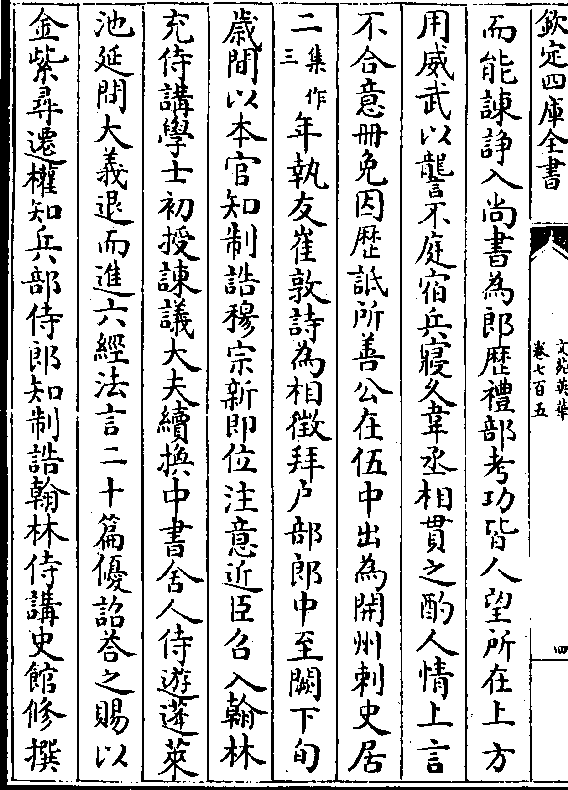 欽定四庫全書
文苑英華
卷七百五
四
而能諫諍入尚書為郎歷禮部考功皆人望所在上方
用威武以讋不庭宿兵寖久韋丞相貫之酌人情上言
不合意册免因歷詆所善公在伍中出為開州刺史居
二集作三年執友崔敦詩為相徵拜户部郎中至闕下旬
歲間以本官知制誥穆宗新即位注意近臣召入翰林
充侍講學士初授諫議大夫續換中書舍人侍遊蓬萊
池延問大義退而進六經法言二十篇優詔荅之賜以
金紫尋遷權知兵部侍郎知制誥翰林侍講史館修撰